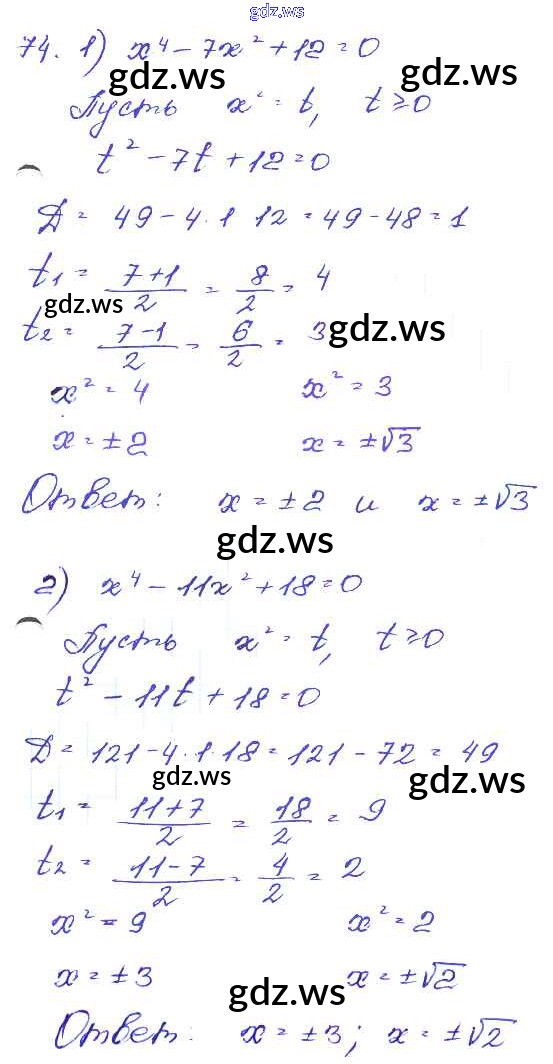 gdz.ws
74. 1) x⁴ - 7x² + 12 = 0
gdz.ws gdz.ws
Пусть x² = t, t ≥ 0
t² - 7t + 12 = 0
D = 49 - 4 · 1 12 = 49 - 48 = 1
t₁ = (7+1)/2 = 8/2 = 4
gdz.ws
t₂ = (7-1)/2 = 6/2 = 3
gdz.ws
x² = 4 x² = 3
x = ±2 x = ±√3
Ответ: x = ±2 и x = ±√3
gdz.ws
2) x⁴ - 11x² + 18 = 0
Пусть x² = t, t ≥ 0
t² - 11t + 18 = 0
D = 121 - 4 · 1 · 18 = 121 - 72 = 49
gdz.ws gdz.ws
t₁ = (11+7)/2 = 18/2 = 9
t₂ = (11-7)/2 = 4/2 = 2
x² = 9 x² = 2
x = ±3 x = ±√2
gdz.ws
Ответ: x = ±3; x = ±√2